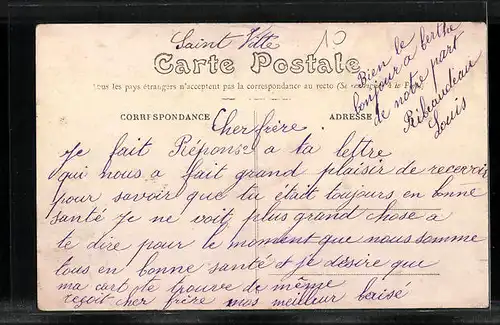 Saint
10
Carte Postale
Tous les pays étrangers n'acceptent pas la correspondance au recto (Se
CORRESPONDANCE
ADRESSE
Bien le
bonjour a berthe
de notre part
Ribaudeau
Louis
Cher frère
Je fait Réponse a ta lettre
qui nous a fait grand plaisir de recevoir
pour savoir que tu était toujours en bonne
santé Je ne voit plus grand chose a
te dire pour le moment que nous somme
tous en bonne santé et je désire que
ma cart te trouve de même
reçoit cher frère mos meilleur baisé